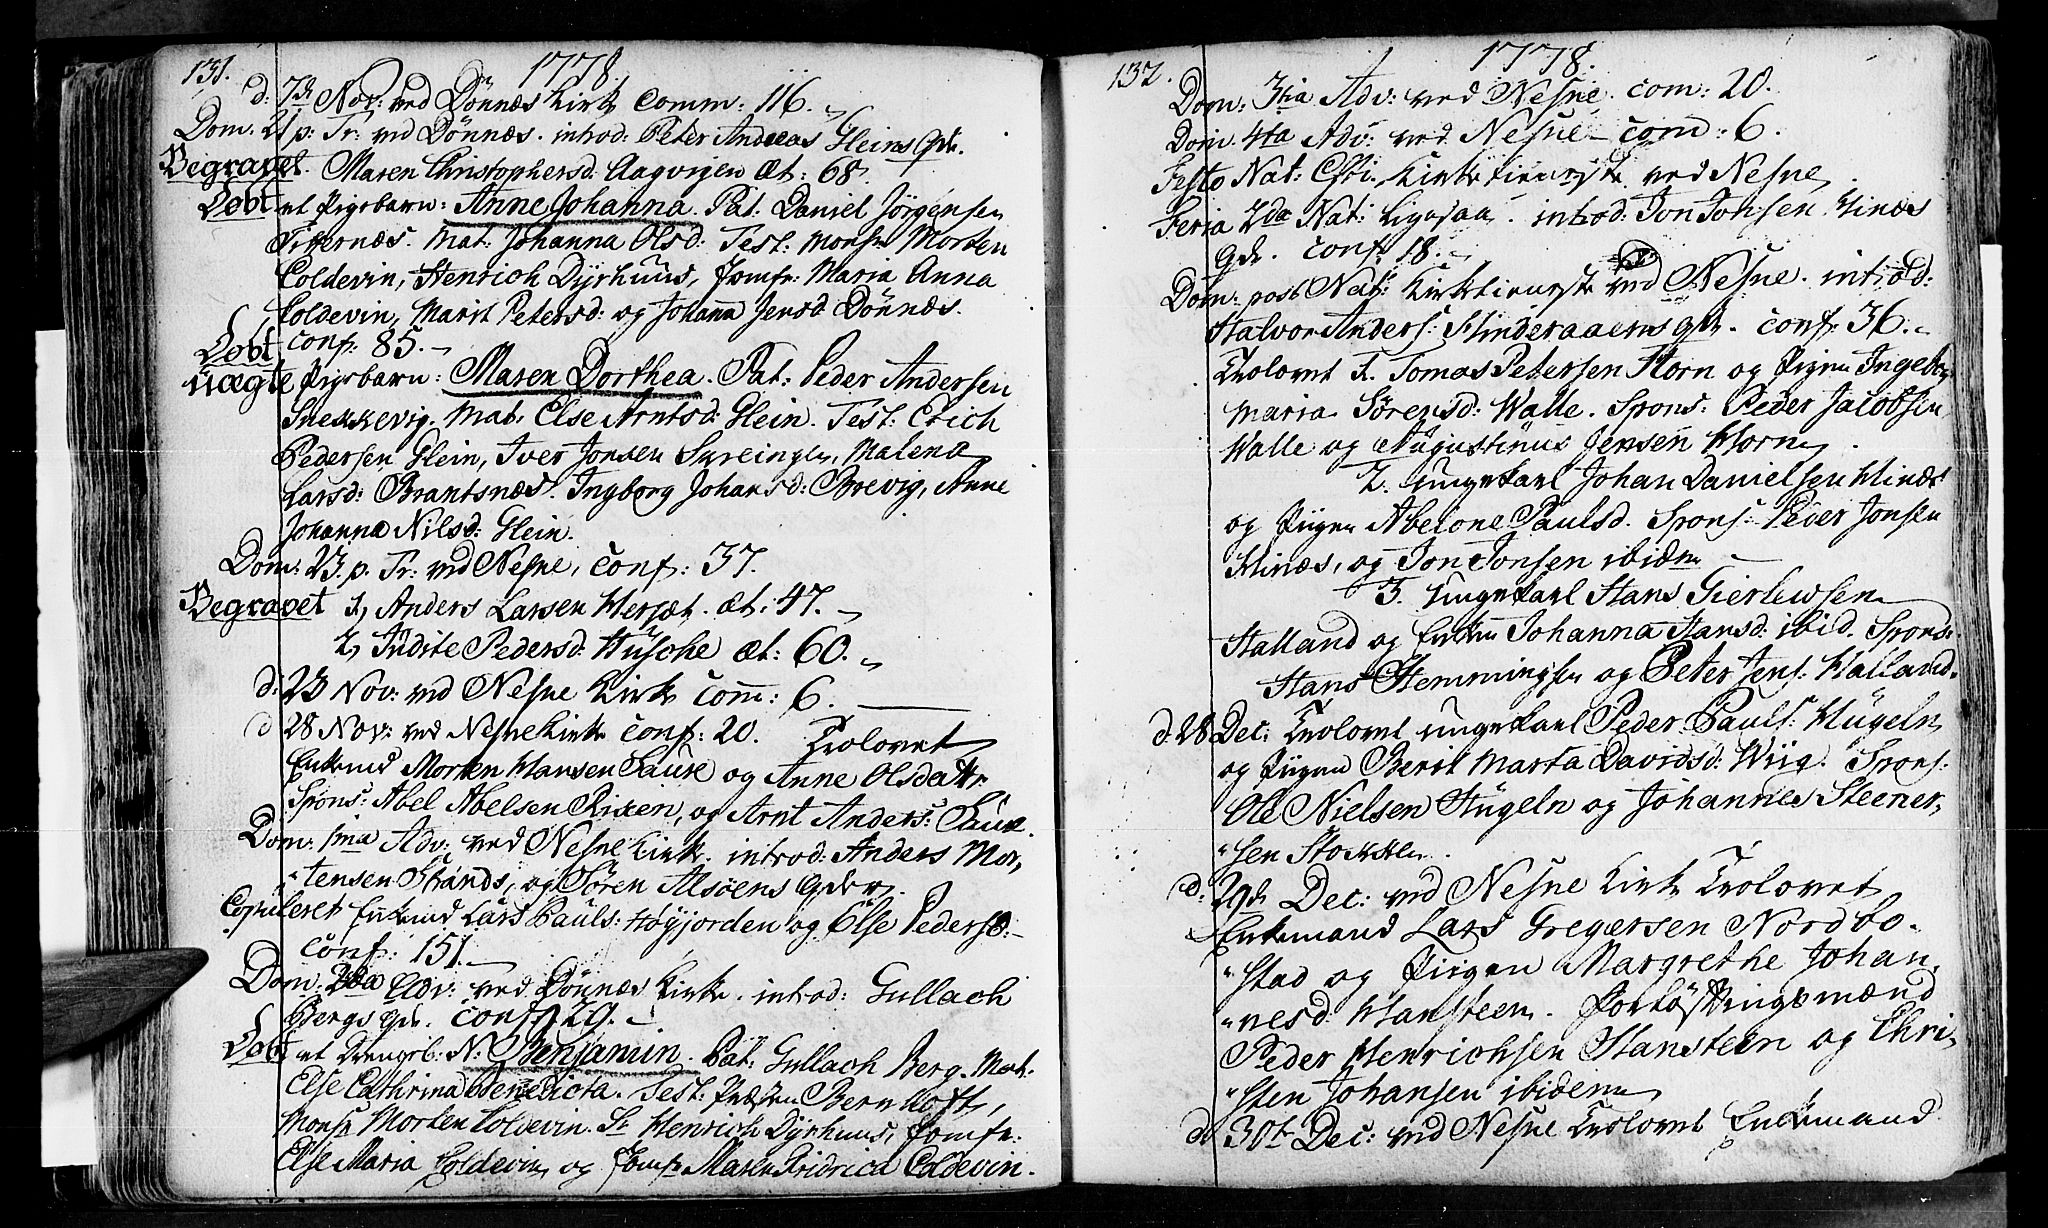 131. 1778.
d: 7de Nov: ved Dönnæs Kirke Comm: 116.
Dom. 21 p: Tr: ved Dönnæs. introd: Peter Andreas Gleins qde.
Begravet. Maren Christophersd: Aagvigen Æt: 68.
Döbt et Pigebarn: Anne Johanna. Pat: Daniel Jörgensen
Mat: Johanna Olsd: Test: Monsr Morten
Coldevin, Henrich Dyrhuus, Jomfr: Maria Anna
Coldevin, Marit Petersd: og Johanna Jensd Dönnæs.
Conf: 85.
Döbt uægte Pigebarn: Maren Dorthea. Pat: Peder Andersen
Snekkevig. Mat: Else Arntsd: Glein. Test: Erich
Pedersen Glein, Iver Jonsen Svreingen, Malena
Larsd: Brantsnæs. Ingborg Johansd: Brevig, Anne
Johanna Nilsd: Glein.
Dom: 23. p. Tr: ved Nesne, Conf: 37.
Begravet 1, Anders Larsen Hersæt. æt: 47.
2, Judite Pedersd: Husbye æt: 60.
d: 23 Nov: ved Nesne Kirke Comm: 6.
d 28 Nov: ved Nesne Kirke Conf: 20. Trolovet
Enkemd Morten Hansen Saure og Anne Olsdattr.
Spons: Abel Abelsen Rixen, og Arnt Anders: Saure.
Dom: 1ma Adv: ved Nesne Kirke. introd: Anders Mor,
"tensen Strands, og Sören Alsöens qder.
Copuleret Enkemd Lars Pauls: Högjorden og Else Pedersd:
Conf: 151.
Dom: 2da Adv: ved Dönnæs Kirke. introd: Gullach
Bergs qde. Conf: 129.
Döbt et Drengeb: N: Benjamin. Pat: Gullach Berg. Mat:
Else Cathrina Benedicta. Test: Præsten Bernhoft,
Monsr Morten Coldevin. Sr Henrich Dyrhuus, Jomfr:
Else Maria Coldevin og Jomfr Maren Fridrica Coldevin.
132. 1778.
Dom: 3tia Adv: ved Nesne. com: 20.
Dom: 4ta Adv: ved Nesne com: 6.
Festo Nat: Csti. Kirketieneste ved Nesne
Feria 2da Nat: ligesaa. introd: Jon Jonsen Hinæs
qde. conf: 18.
Dom: post Nat: Kirketieneste ved Nesne. introd:
Halvor Anders: Hinderaaens qde. conf: 36.
Trolovet 1. Tomas Petersen Horn og Pigen Ingeb:
Maria Sörensd: Walle. Spons: Peder Jacobsen
Walle og Augustinus Jensen Horn.
2. Ungekarl Johan Danielsen Hinæs
og Pigen Abelone Paulsd. Spons: Peder Jonsen
Hinæs, og Jon Jonsen ibidem
3. Ungekarl Hans Gierlewsen
Halland og Enken Johanna Hansd: ibid. Spons:
Hans Hemmingsen og Peter Jens: Halland.
d. 28 Dec: Trolovet Ungekarl Peder Pauls: Hugeln
og Pigen Berit Marta Davidsd: Wiig. Spons:
Ole Nielsen Hugeln og Johannes Steener,
"sen Stokklen.
d: 29de Dec: ved Nesne Kirke Trolovet
Enkemand Lars Gregersen Nordbo-
"stad og Pigen Margrethe Johan,
"nesd: Hansteen. Forlöftningsmænd
Peder Henrichsen Hansteen og Chri,
"sten Johansen ibidem
d. 30te Dec: ved Nesne Trolovet Enkemand